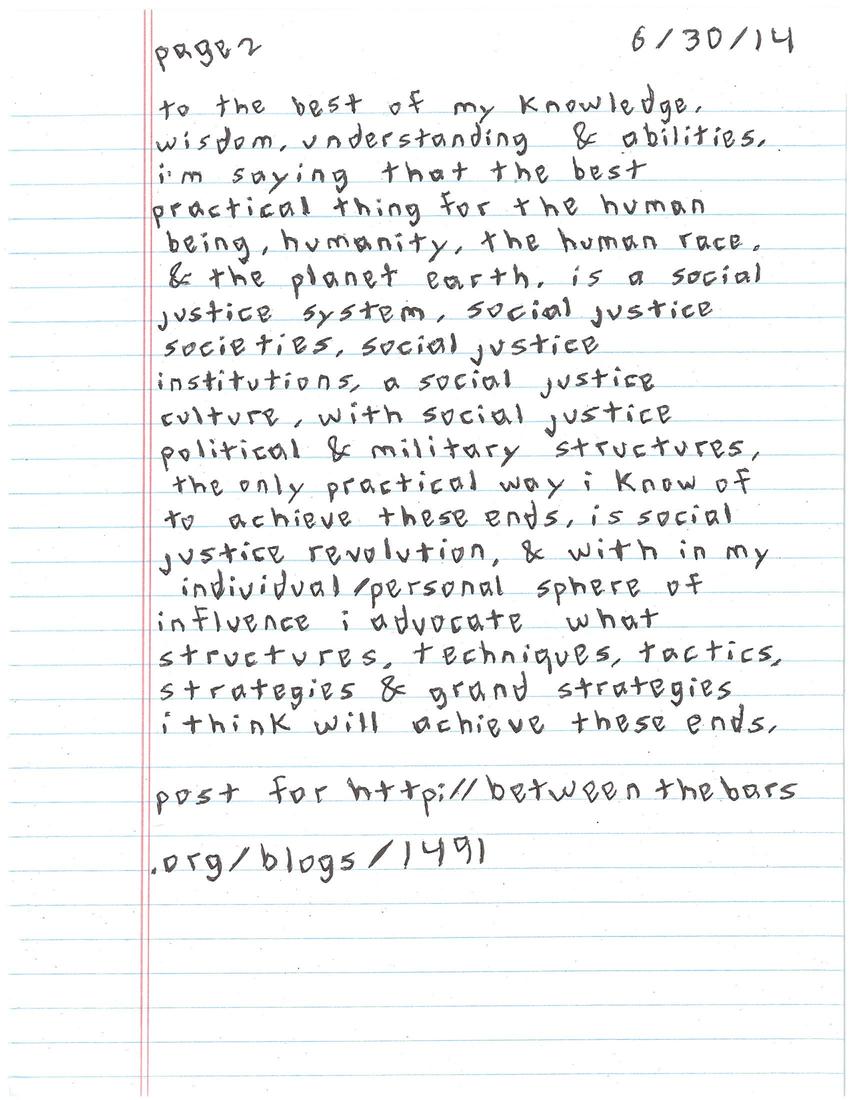 page 2
6/30/14
to the best of my knowledge,
wisdom, understanding & abilities,
i'm saying that the best
practical thing for the human
being, humanity, the human race,
& the planet earth, is a social
justice system, social justice
societies, social justice
institutions, a social justice
culture, with social justice
political & military structures,
the only practical way i know of
to achieve these ends, is social
justice revolution, & with in my
individual/personal sphere of
influence i advocate what
structures, techniques, tactics,
strategies & grand strategies
i think will achieve these ends,
post for http://betweenthebars
.org/blogs/1491